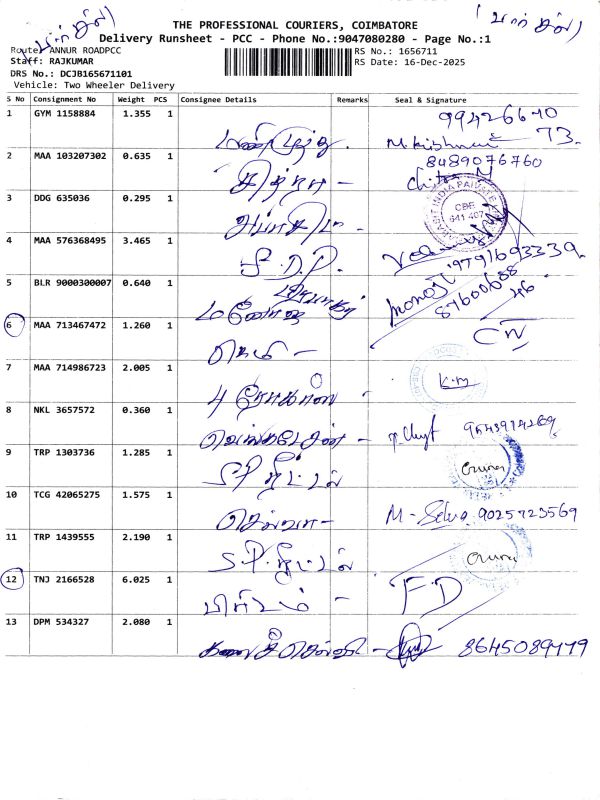 (பார்சல்)
(பார்சல்)
THE PROFESSIONAL COURIERS, COIMBATORE
Delivery Runsheet - PCC - Phone No.:9047080280 - Page No.:1
Route: ANNUR ROADPCC RS No.: 1656711
Staff: RAJKUMAR RS Date: 16-Dec-2025
DRS No.: DCJB165671101
Vehicle: Two Wheeler Delivery
S No Consignment No Weight PCS Consignee Details Remarks Seal & Signature
1 GYM 1158884 1.355 1 99426640
73.
2 MAA 103207302 0.635 1 சித்ரா - 8489076760
Chitra M
3 DDG 635036 0.295 1 CBE
641 407
4 MAA 576368495 3.465 1 J.D.P. 9791693339
5 BLR 9000300007 0.640 1 மனோஜ் Manoj 87600688
46
6 MAA 713467472 1.260 1 CW
7 MAA 714986723 2.005 1 K.M
8 NKL 3657572 0.360 1 வெங்கடேசன் - 9543914269
9 TRP 1303736 1.285 1 S.P. ஓட்டல்
10 TCG 42065275 1.575 1 செல்வா - M - Selva 9025723569
11 TRP 1439555 2.190 1 S.P. ஓட்டல்
12 TNJ 2166528 6.025 1 FD
13 DPM 534327 2.080 1 கலைச்செல்வி - 8645089779